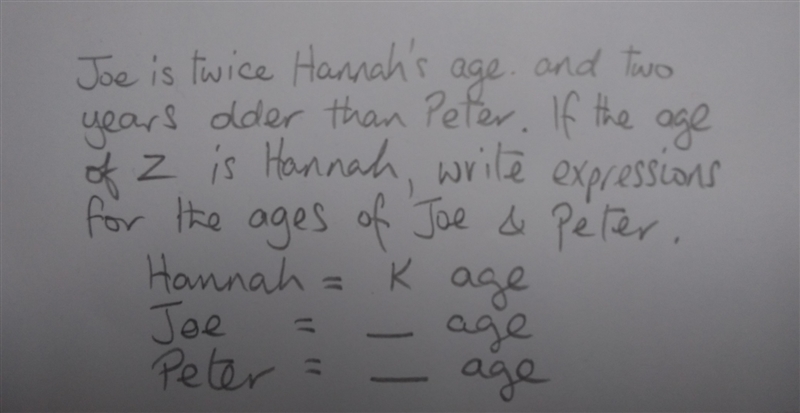 Joe is twice Hannah's age. and two
years older than Peter. If the age
of Z is Hannah, write expressions
for the ages of Joe & Peter.
Hannah = K age
Joe = _ age
Peter = _ age